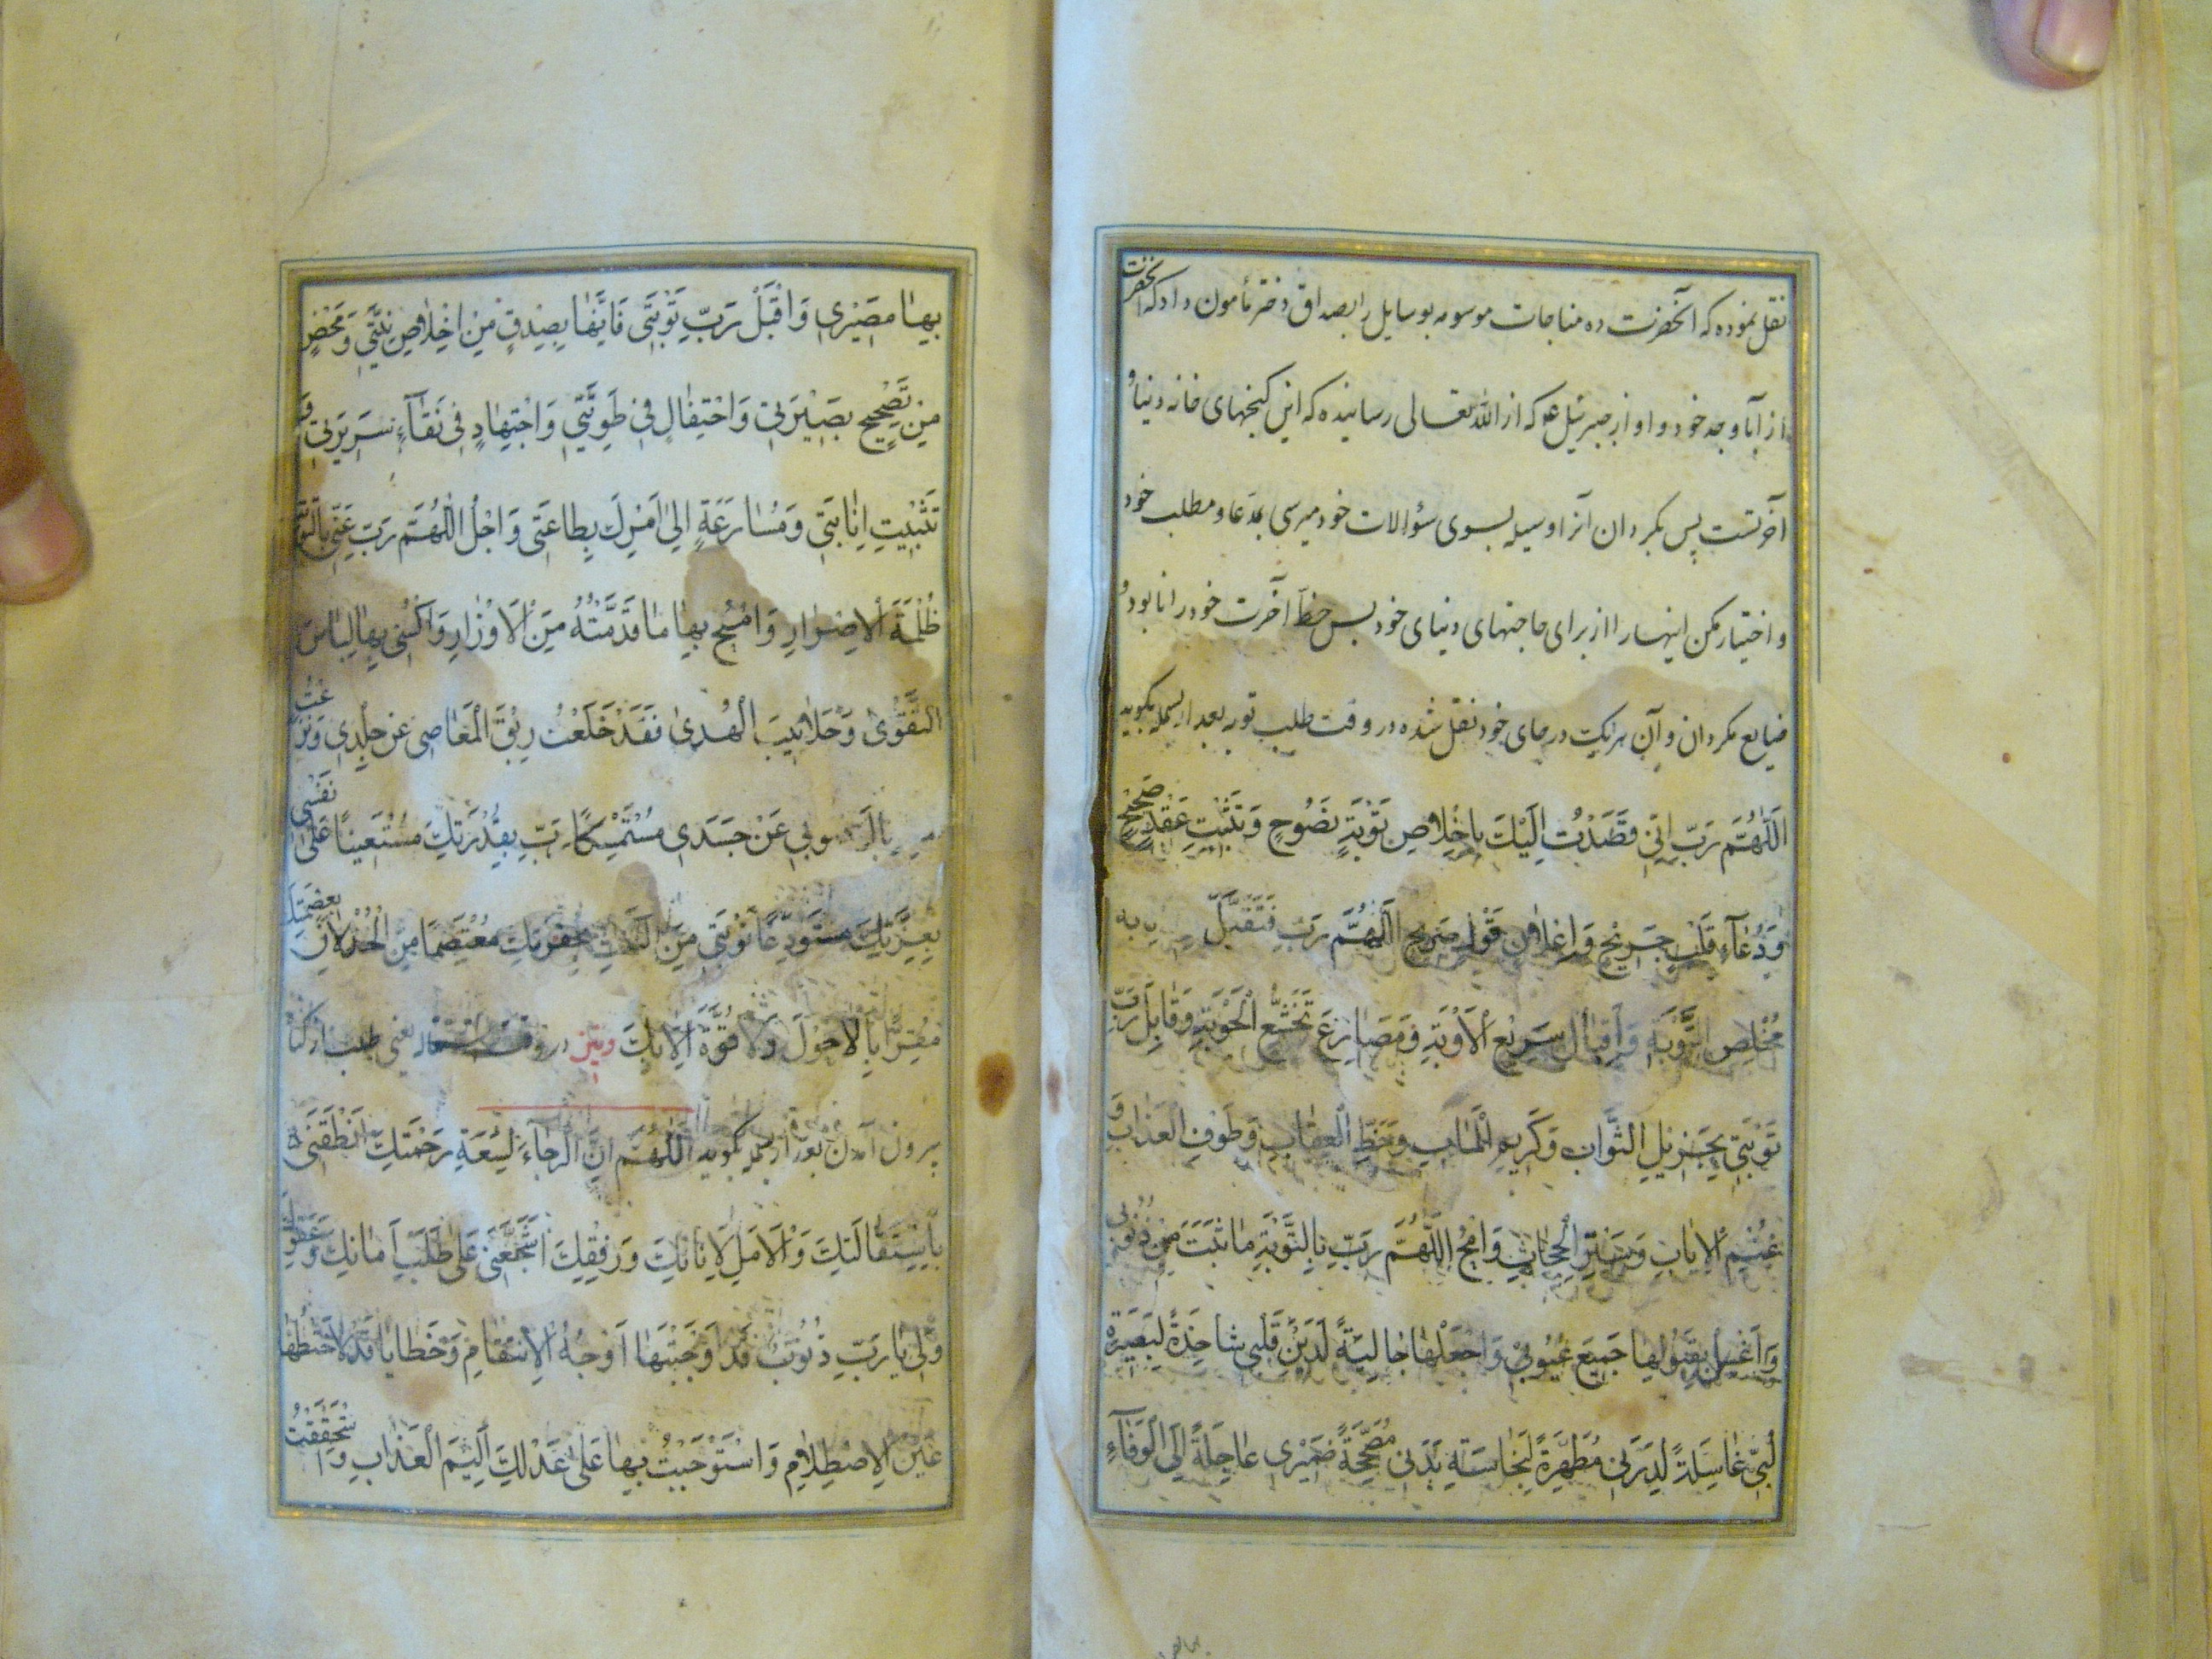 نقل نموده که آنحضرت ده مناجات موسومه بوسایل را بصداق دختر مأمون داد که آنحضرت
از آبا و جد خود و او از جبرئیل ع که از الله تعالی رسانیده که این کنجهای خانه دنیا و
آخرتست پس بکردان آنرا وسیله بسوی سؤالات خود میرسی بمدعا و مطلب خود
و اختیار مکن اینها را از برای حاجتهای دنیای خود بس حظّ آخرت خود را نابود و
ضایع مکردان و آن هر یکت در جای خود نقل شده در وقت طلب توبه بعد از بسمله بکوید
اَللّٰهُمَّ رَبِّ اِنّی قَصَدْتُ اِلَیْكَ بِاِخْلاصِ تَوْبَةٍ نَصُوحٍ وَتَثْبیتِ عَقْدٍ صَحیحٍ
وَدُعآءِ قَلْبٍ جَریحٍ وَاِعْلانِ قَوْلٍ صَریحٍ اَللّٰهُمَّ رَبِّ فَتَقَبَّلْ
مُخْلِصَ التَّوْبَةِ وَاِقْبالَ سَریعِ الْاَوْبَةِ وَمَصارِعَ تَخَشُّعِ الْحَوْبَةِ وَقابِلْ رَبِّ
تَوْبَتی بِجَزیلِ الثَّوابِ وَکَریمِ الْمَـابِ وَحَطِّ الْعِقابِ وَصَرْفِ الْعَذابِ وَ
غُنْمِ الْاِیابِ وَسَتْرِ الْحِجابِ وَامْحُ اللّٰهُمَّ رَبِّ بِالتَّوْبَةِ ما ثَبَتَ مِنْ ذُنُوبی
وَاغْسِلْ بِقَبُولِها جَمیعَ عُیُوبی وَاجْعَلْها جالِیَةً لِرَیْنِ قَلْبی شاحِذَةً لِبَصیرَةِ
لُبّی غاسِلَةً لِدَرَنی مُطَهِّرَةً لِنَجاسَةِ بَدَنی مُصَحِّحَةً ضَمیری عاجِلَةً اِلَی الْوَفآءِ
بِها مَصیری وَاقْبَلْ رَبِّ تَوْبَتی فَاِنَّها بِصِدْقٍ مِنْ اِخْلاصِ نِیَّتی وَمَحْضٍ
مِنْ تَصْحیحِ بَصیرَتی وَاحْتِفالٍ فی طَوِیَّتی وَاجْتِهادٍ فی نَقآءِ سَریرَتی وَ
تَثْبیتِ اِنابَتی وَمُسارَعَةٍ اِلیٰ اَمْرِكَ بِطاعَتی وَاجْلُ اللّٰهُمَّ رَبِّ عَنّی بِالتَّوْبَةِ
ظُلْمَةَ الْاِصْرارِ وَامْحُ بِها ما قَدَّمْتُهُ مِنَ الْاَوْزارِ وَاکْسُنی بِها لِباسَ
التَّقْویٰ وَجَلابیبَ الْهُدیٰ فَقَدْ خَلَعْتُ رِبْقَ الْمَعاصی عَنْ جِلْدی وَنَزَعْتُ
عَنْ جَسَدی مُسْتَمْسِکًا رَبِّ بِقُدْرَتِكَ مُسْتَعینًا عَلیٰ نَفْسی
بِعِزَّتِكَ مُسْتَوْدِعًا تَوْبَتی مِنَ النَّکْثِ بِخُفْرَتِكَ مُعْتَصِمًا مِنَ الْخِذْلانِ بِعِصْمَتِكَ
مُقِرًّا بِلا حَوْلَ وَلا قُوَّةَ اِلّا بِكَ و نیز در وقت استقاله یعنی طلب از کناه
بیرون آمدن بعد از بسمله بکوید اَللّٰهُمَّ اِنَّ الرَّجآءَ لِسَعَةِ رَحْمَتِكَ اَنْطَقَنی
بِاسْتِقالَتِكَ وَالْاَمَلِ لِاَناتِكَ وَرِفْقِكَ شَجَّعَنی عَلیٰ طَلَبِ اَمانِكَ وَعَفْوِكَ
وَلی یا رَبِّ ذُنُوبٌ قَدْ وَاجَهَتْها اَوْجُهُ الْاِنْتِقامِ وَخَطایا قَدْ لاحَظَتْها
عَیْنُ الْاِصْطِلامِ وَاسْتَوْجَبْتُ بِها عَلیٰ عَدْلِكَ اَلیمَ الْعَذابِ وَاسْتَحْقَقْتُ